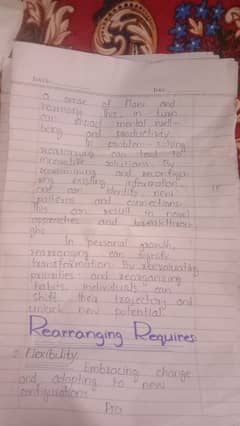 DATE:
a sense of flow and
harmony. This, in turn
can impact mental well-
being and productivity.
In problem-solving
rearranging can lead to
innovative solutions. By
existing information,
one can identify new
patterns and connections.
This can result in novel
approaches and breakthrou-
ghs.
In personal growth,
rearranging can signify
transformation. By reevaluating
priorities and reorganizing
habits, individuals can
shift their trajectory and
unlock new potential.
Rearranging Requires:
Flexibility:
Embracing change
and adapting to new
configurations.